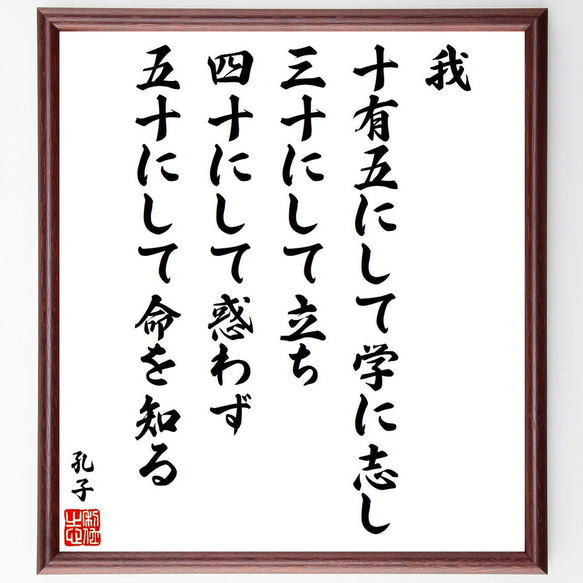 我
十有五にして学に志し
三十にして立ち
四十にして惑わず
五十にして命を知る
孔子